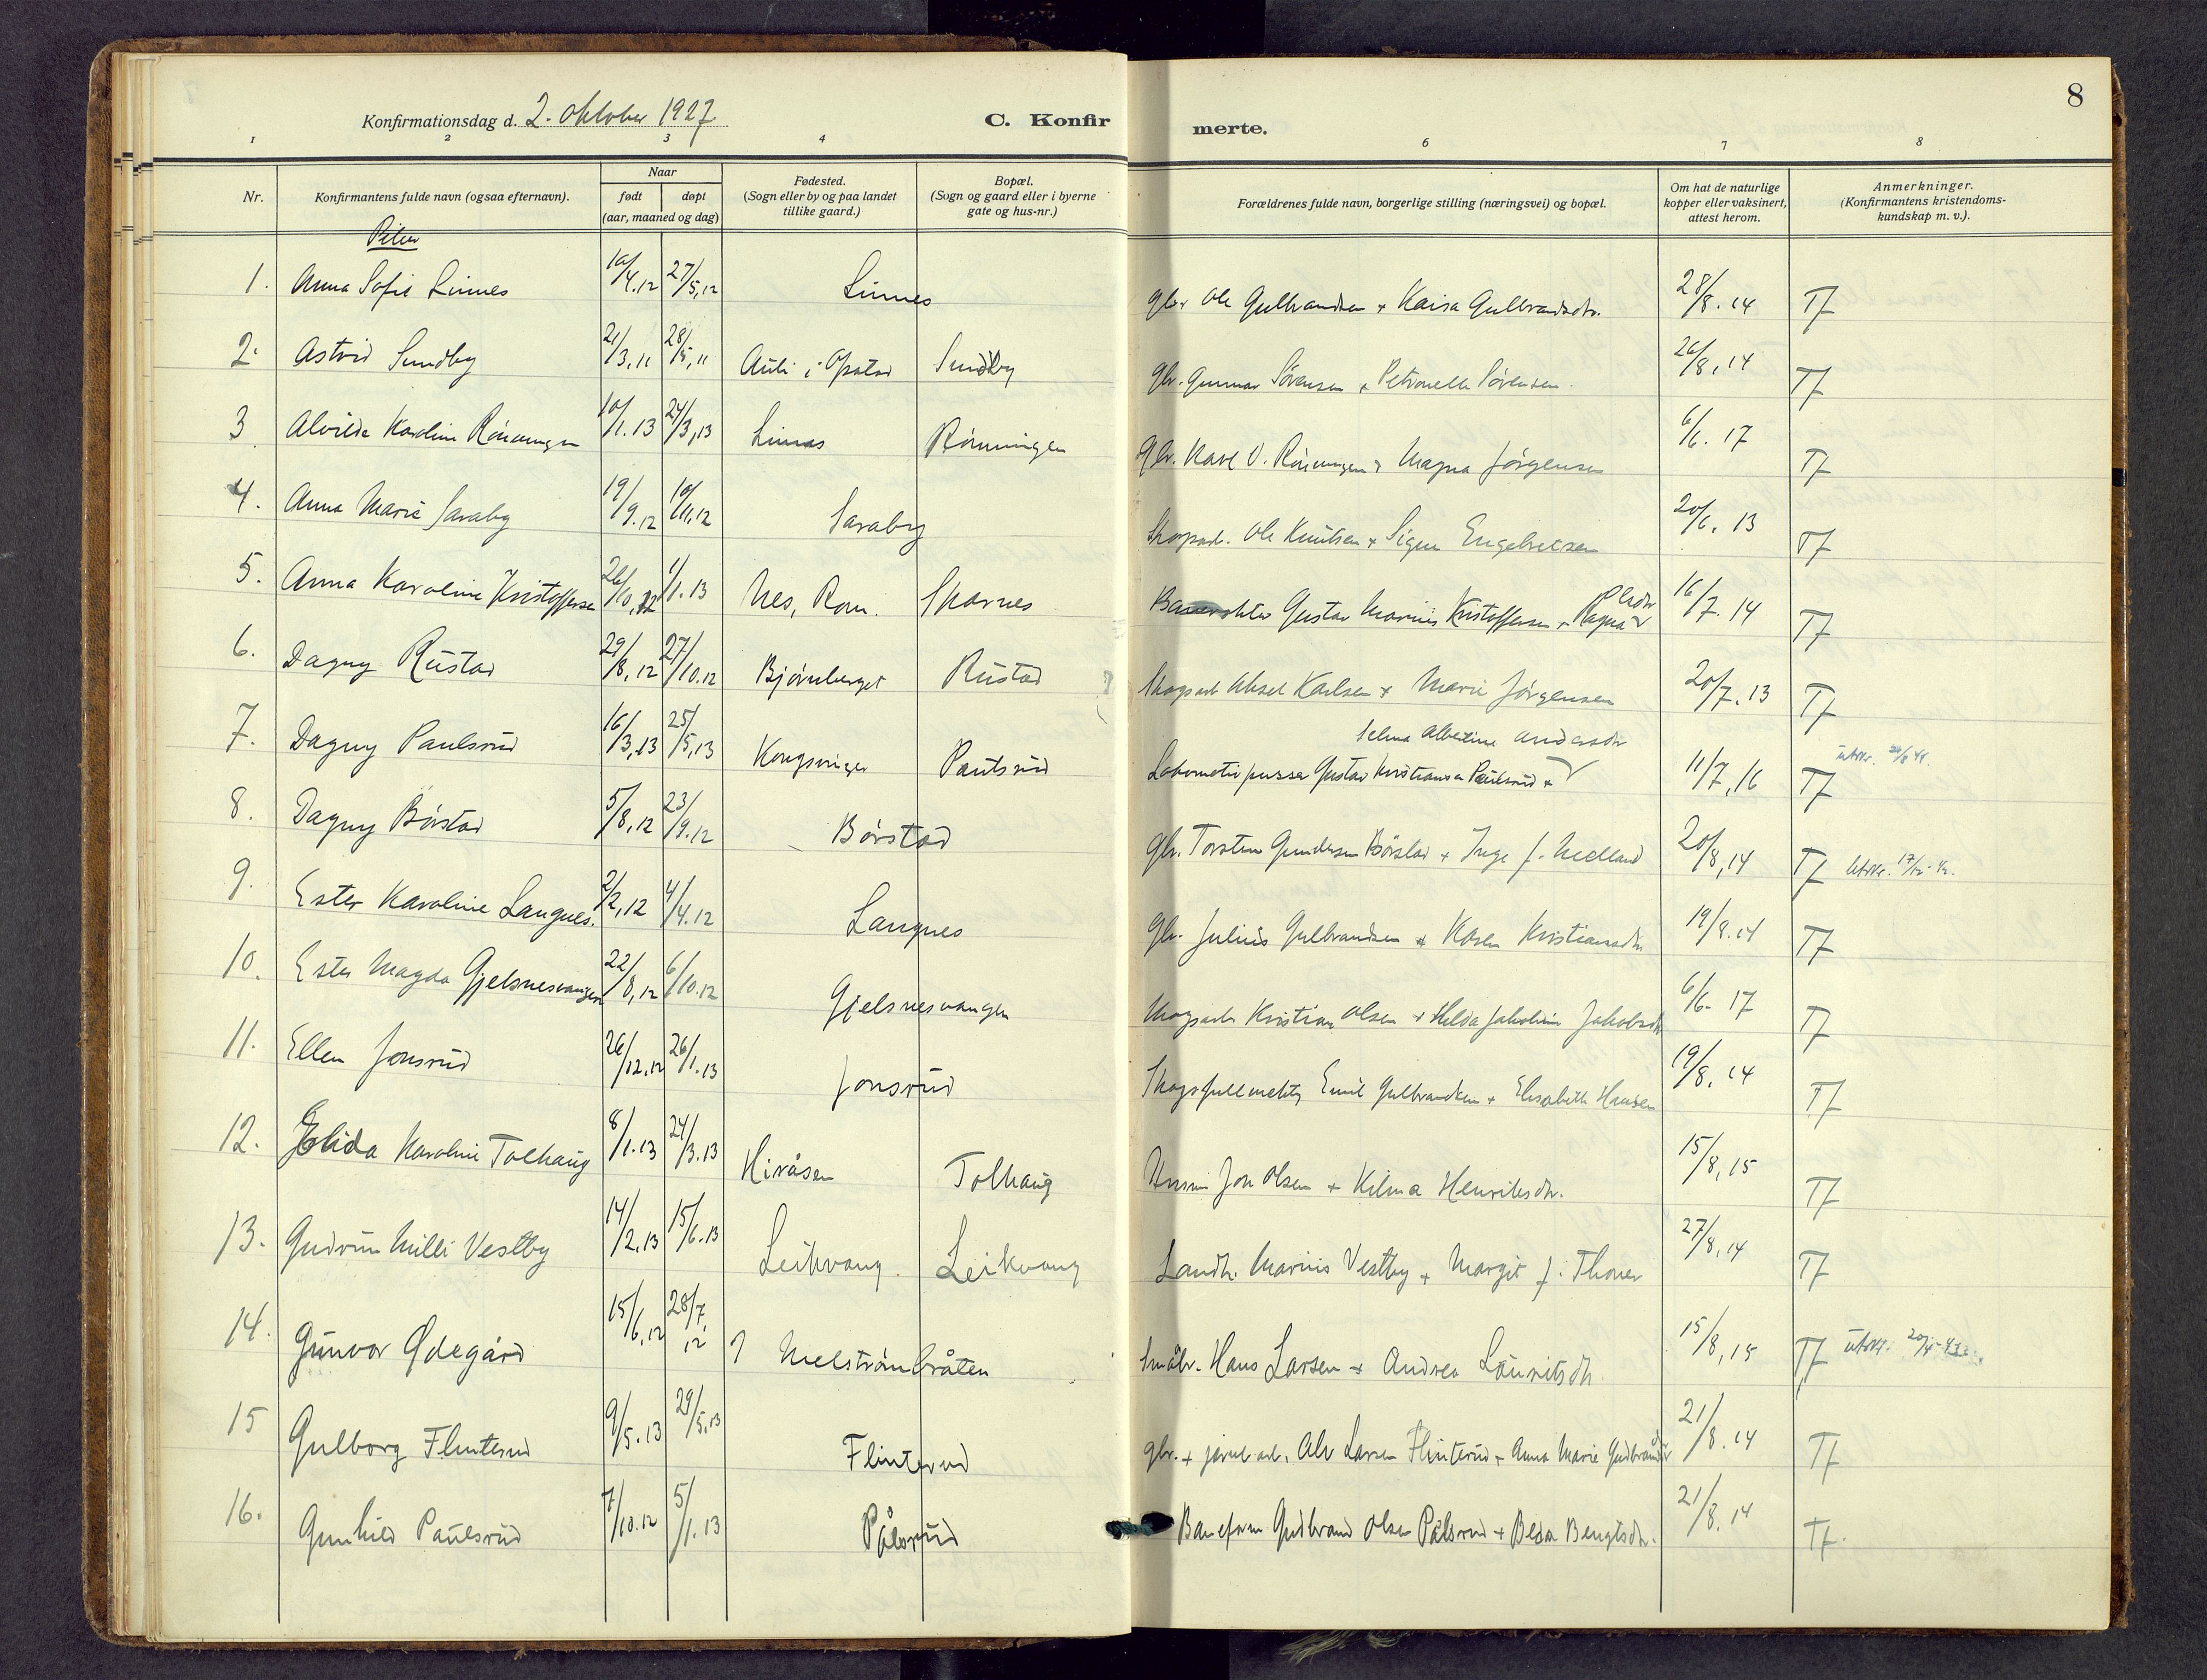 8
Konfirmationsdag d. 2. oktober 1927
C. Konfirmerte.
1 2 3 4 6 7 8
Nr.
Konfirmantens fulde navn (ogsaa efternavn).
Naar
født døpt
(aar, maaned og dag)
Fødested.
(Sogn eller by og paa landet
tillike gaard.)
Bopæl.
(Sogn og gaard eller i byerne
gate og hus-nr.)
Forældrenes fulde navn, borgerlige stilling (næringsvei) og bopæl.
Om hat de naturlige
kopper eller vaksinert,
attest herom.
Anmerkninger.
(Konfirmantens kristendoms-
kundskap m. v.).
Piker
1. Anna Sofie Linnes 10/4.12 27/5.12 Linnes gbr. Ole Gulbrandsen + Kaisa Gulbrandsdtr. 28/8.14 Tf
2. Astrid Sundby 21/3,11 28/5,11 Auli i Opstad Sundby Gbr. Gunnar Sørensen + Petronelle Sørensen. 26/8,14 Tf
3 Alvilde Karoline Rønningen 10/1.13 24/3,13 Linnes Rønningen Gbr. Karl O. Rønningen + Magna Jørgensen 6/6.17 Tf
4. Anna Marie Saraby 19/9.12 10/11,12 Saraby Skogsarb. Ole Knutsen + Signe Engebretsen 20/6.13 Tf
5. Anna Karoline Kristoffersen 26/10,12 1/1.13 Nes, Rom. Skarnes Gustav Marius Kristoffersen + Ragna 16/7.14 Tf
6. Dagny Rustad 29/8,12 27/10.12 Bjørneberget Rustad Skogsarb Aksel Karlsen + Marie Jørgensen 20/7.13 Tf
Selma Albertine Andersdtr
7. Dagny Paulsrud 16/3,13 25/5,13 Kongsvinger Paulsrud Lokomotivpusser Gustav Kristiansen Paulsrud + 11/7,16 Tf
8. Dagny Børstad 5/8,12 23/9.12 Børstad Gbr. Torsten Gundersen Børstad + Inge f. Melland 20/8,14 Tf Utskr. 17/12-42.
9. Ester Karoline Langnes. 2/2,12 4/4.12 Langnes Gbr. Julius Gulbrandsen + Karen Kristiansdtr 19/8.14 Tf
10. Ester Magda Gjelsnesvangen 22/8,12 6/10.12 Gjelsnesvangen Skogsarb Kristian Olsen + Hilda Jakobine Jakobsdtr 6/6-17 Tf
11. Ellen Jonsrud 26/12.12 26/1.13 Jonsrud Skogsfullmektig Emil Gulbrandsen + Elisabeth Hansen 19/8.14 Tf
12. Elida Karoline Tolhaug 8/1.13 24/3.13 Hiråsen Tolhaug Jon Olsen + Kilma Henriksdtr. 15/8,15 Tf
13. Gudrun Milli Vestby 14/2.13 15/6.13 Leikvang. Leikvang Landh. Marius Vestby + Margit f. Thoner 27/8,14 Tf
14. Gunvor Ødegård 15/6,12 28/7,12 Melstrømbråten Småbr. Hans Larsen + Andrea Lauritsdtr 15/8,15 Tf utskr.
15 Gulborg Flinterud 9/5.13 29/5,13 Flinterud gbr. + jernb.arb. Alv Larsen Flinterud + Anna Marie Gudbrandsdtr 21/8.14 Tf
16. Gunhild Paulsrud 7/10.12 5/1.13 Pålsrud Baneform Gudbrand Olsen Pålsrud + Beda Bengtsdtr. 21/8.14 Tf.